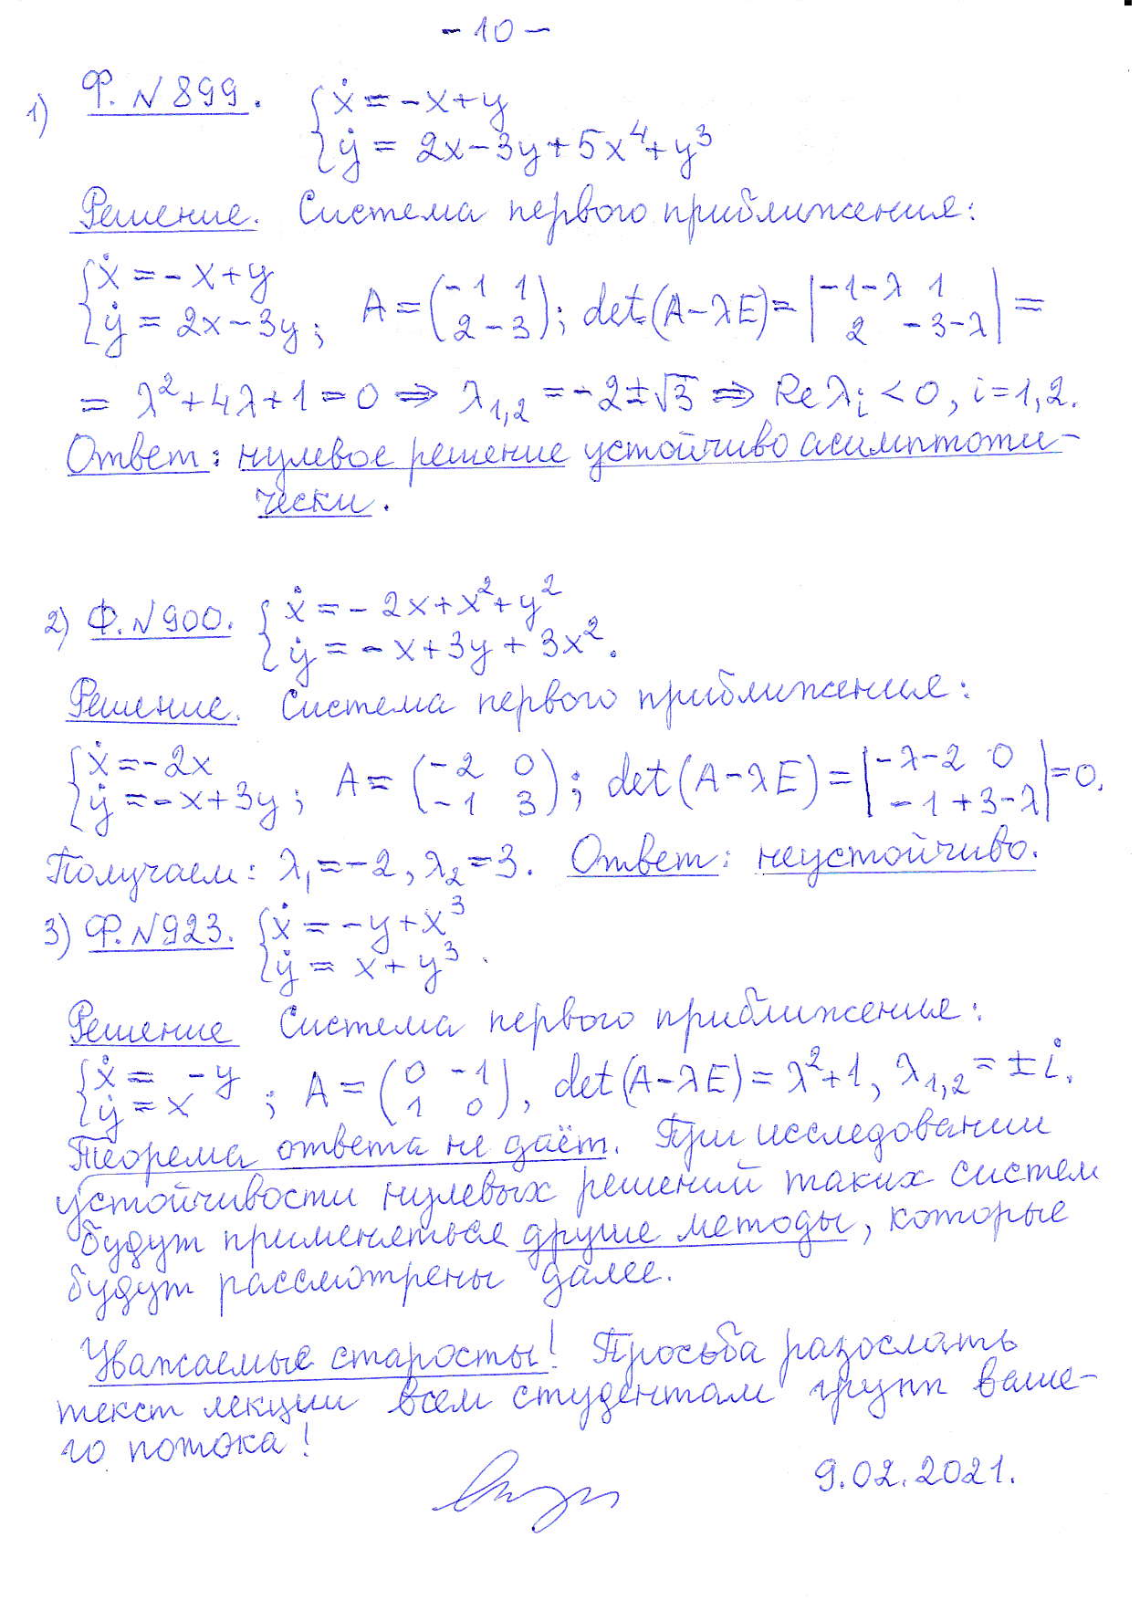 - 10 -
1) Ф. N 899. { ẋ = -x+y
ẏ = 2x-3y+5x⁴+y³
Решение. Система первого приближения:
{ ẋ = -x+y
ẏ = 2x-3y; A = (-1 1; 2 -3); det(A-λE) = |-1-λ 1; 2 -3-λ| =
= λ²+4λ+1=0 ⇒ λ₁,₂ = -2±√3 ⇒ Re λᵢ < 0, i=1,2.
Ответ: нулевое решение устойчиво асимптоти-
чески.
2) Ф. N 900. { ẋ = -2x+x²+y²
ẏ = -x+3y+3x².
Решение. Система первого приближения:
{ ẋ = -2x
ẏ = -x+3y; A = (-2 0; -1 3); det(A-λE) = |-λ-2 0; -1 +3-λ| = 0.
Получаем: λ₁=-2, λ₂=3. Ответ: неустойчиво.
3) Ф. N 923. { ẋ = -y+x³
ẏ = x+y³.
Решение Система первого приближения:
{ ẋ = -y
ẏ = x; A = (0 -1; 1 0), det(A-λE) = λ²+1, λ₁,₂ = ±i.
Теорема ответа не даёт. При исследовании
устойчивости нулевых решений таких систем
будут применяться другие методы, которые
будут рассмотрены далее.
Уважаемые старосты! Просьба разослать
текст лекции всем студентам групп ваше-
го потока!
9.02.2021.